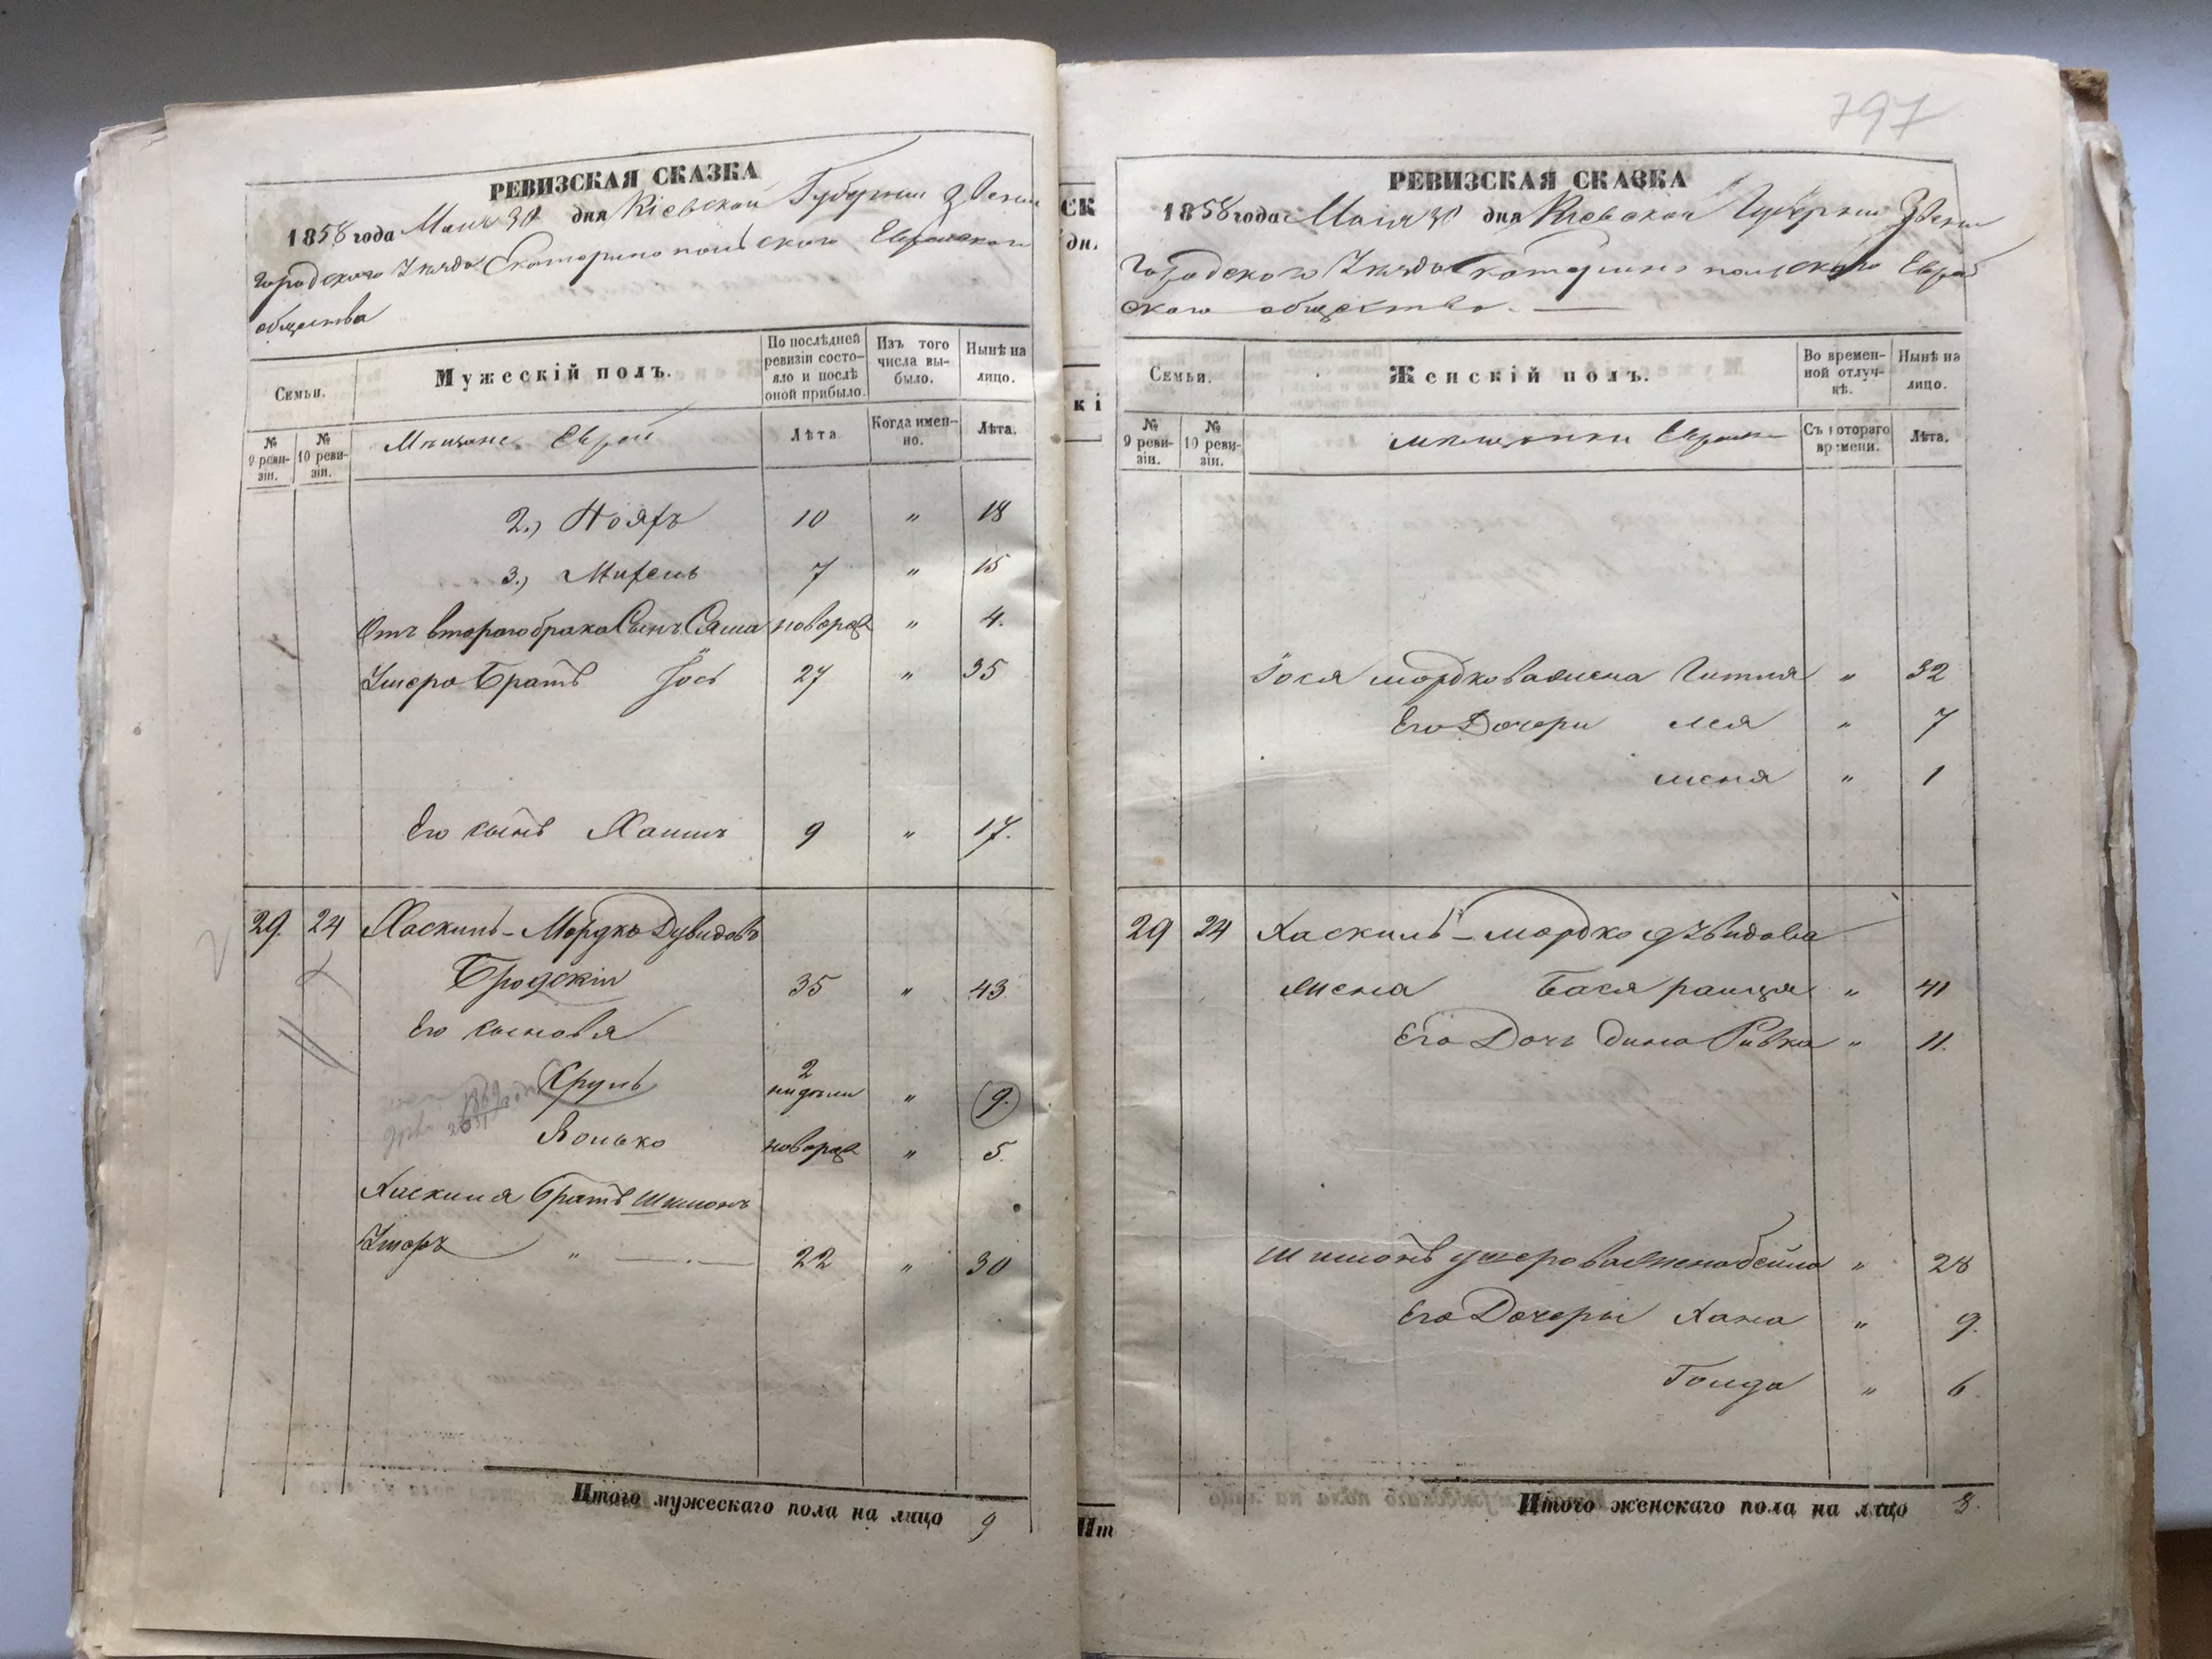 РЕВИЗСКАЯ СКАЗКА
1858 года Мая 30 дня Кіевской Губерніи Звени
городского Уѣзда Екатеринопольского Еврейского
общества
Семьи.
Мужескій полъ.
По послѣдней ревизіи состояло и послѣ оной прибыло.
Изъ того числа выбыло.
Нынѣ на лицо.
№ 9 ревизіи.
№ 10 ревизіи.
Мѣщане Евреи
Лѣта
Когда именно.
Лѣта.
2.) 10 " 18
3.) 7 " 15
Отъ втораго брака Сынъ новорож " 4.
Братъ Іось 27 " 35
Его сынъ Хаимъ 9 " 17.
29. 24 Хаскиль-Мордко Дувидовъ
Бродскій 35 " 43
Его сыновя
Сруль 2 недѣли " 9.
Янько новорож " 5.
Хаскиля Братъ Шимонъ
22 " 30
Итого мужескаго пола на лицо 9
797
РЕВИЗСКАЯ СКАЗКА
1858 года Мая 30 дня Кіевской Губерніи Звени
городского Уѣзда Екатеринопольского Еврей
ского общества. —
Семьи.
Женскій полъ.
Во временной отлучкѣ.
Нынѣ на лицо.
№ 9 ревизіи.
№ 10 ревизіи.
мѣщанки Еврейки
Съ котораго времени.
Лѣта.
Іося мордкова жена Гитля " 32
Его Дочери Лея " 7
" 1
29 24 Хаскиль-мордко дувидова
жена Бася раиця " 41
Его Дочь дина Ривка " 11.
жена бейла " 28
Его Дочери Хана " 9.
Голда " 6.
Итого женскаго пола на лицо 8.